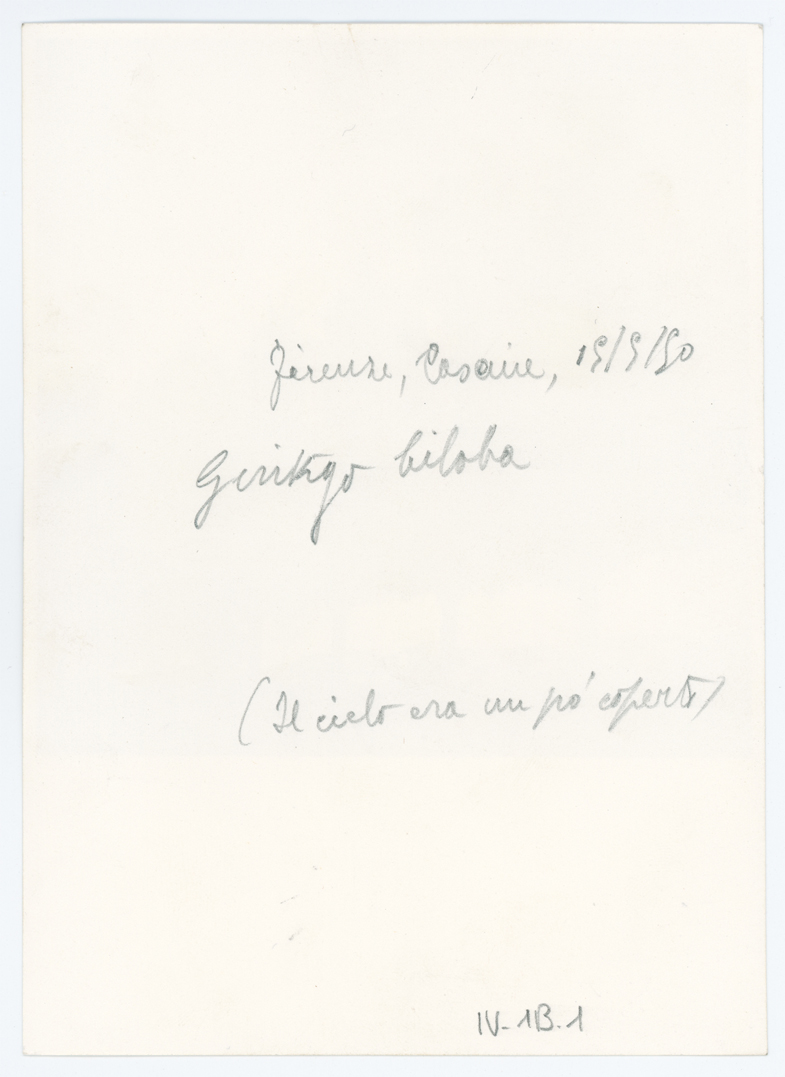 Firenze, Cascine,
Ginkgo biloba
(Il cielo era un pó coperto)
IV-1B.1